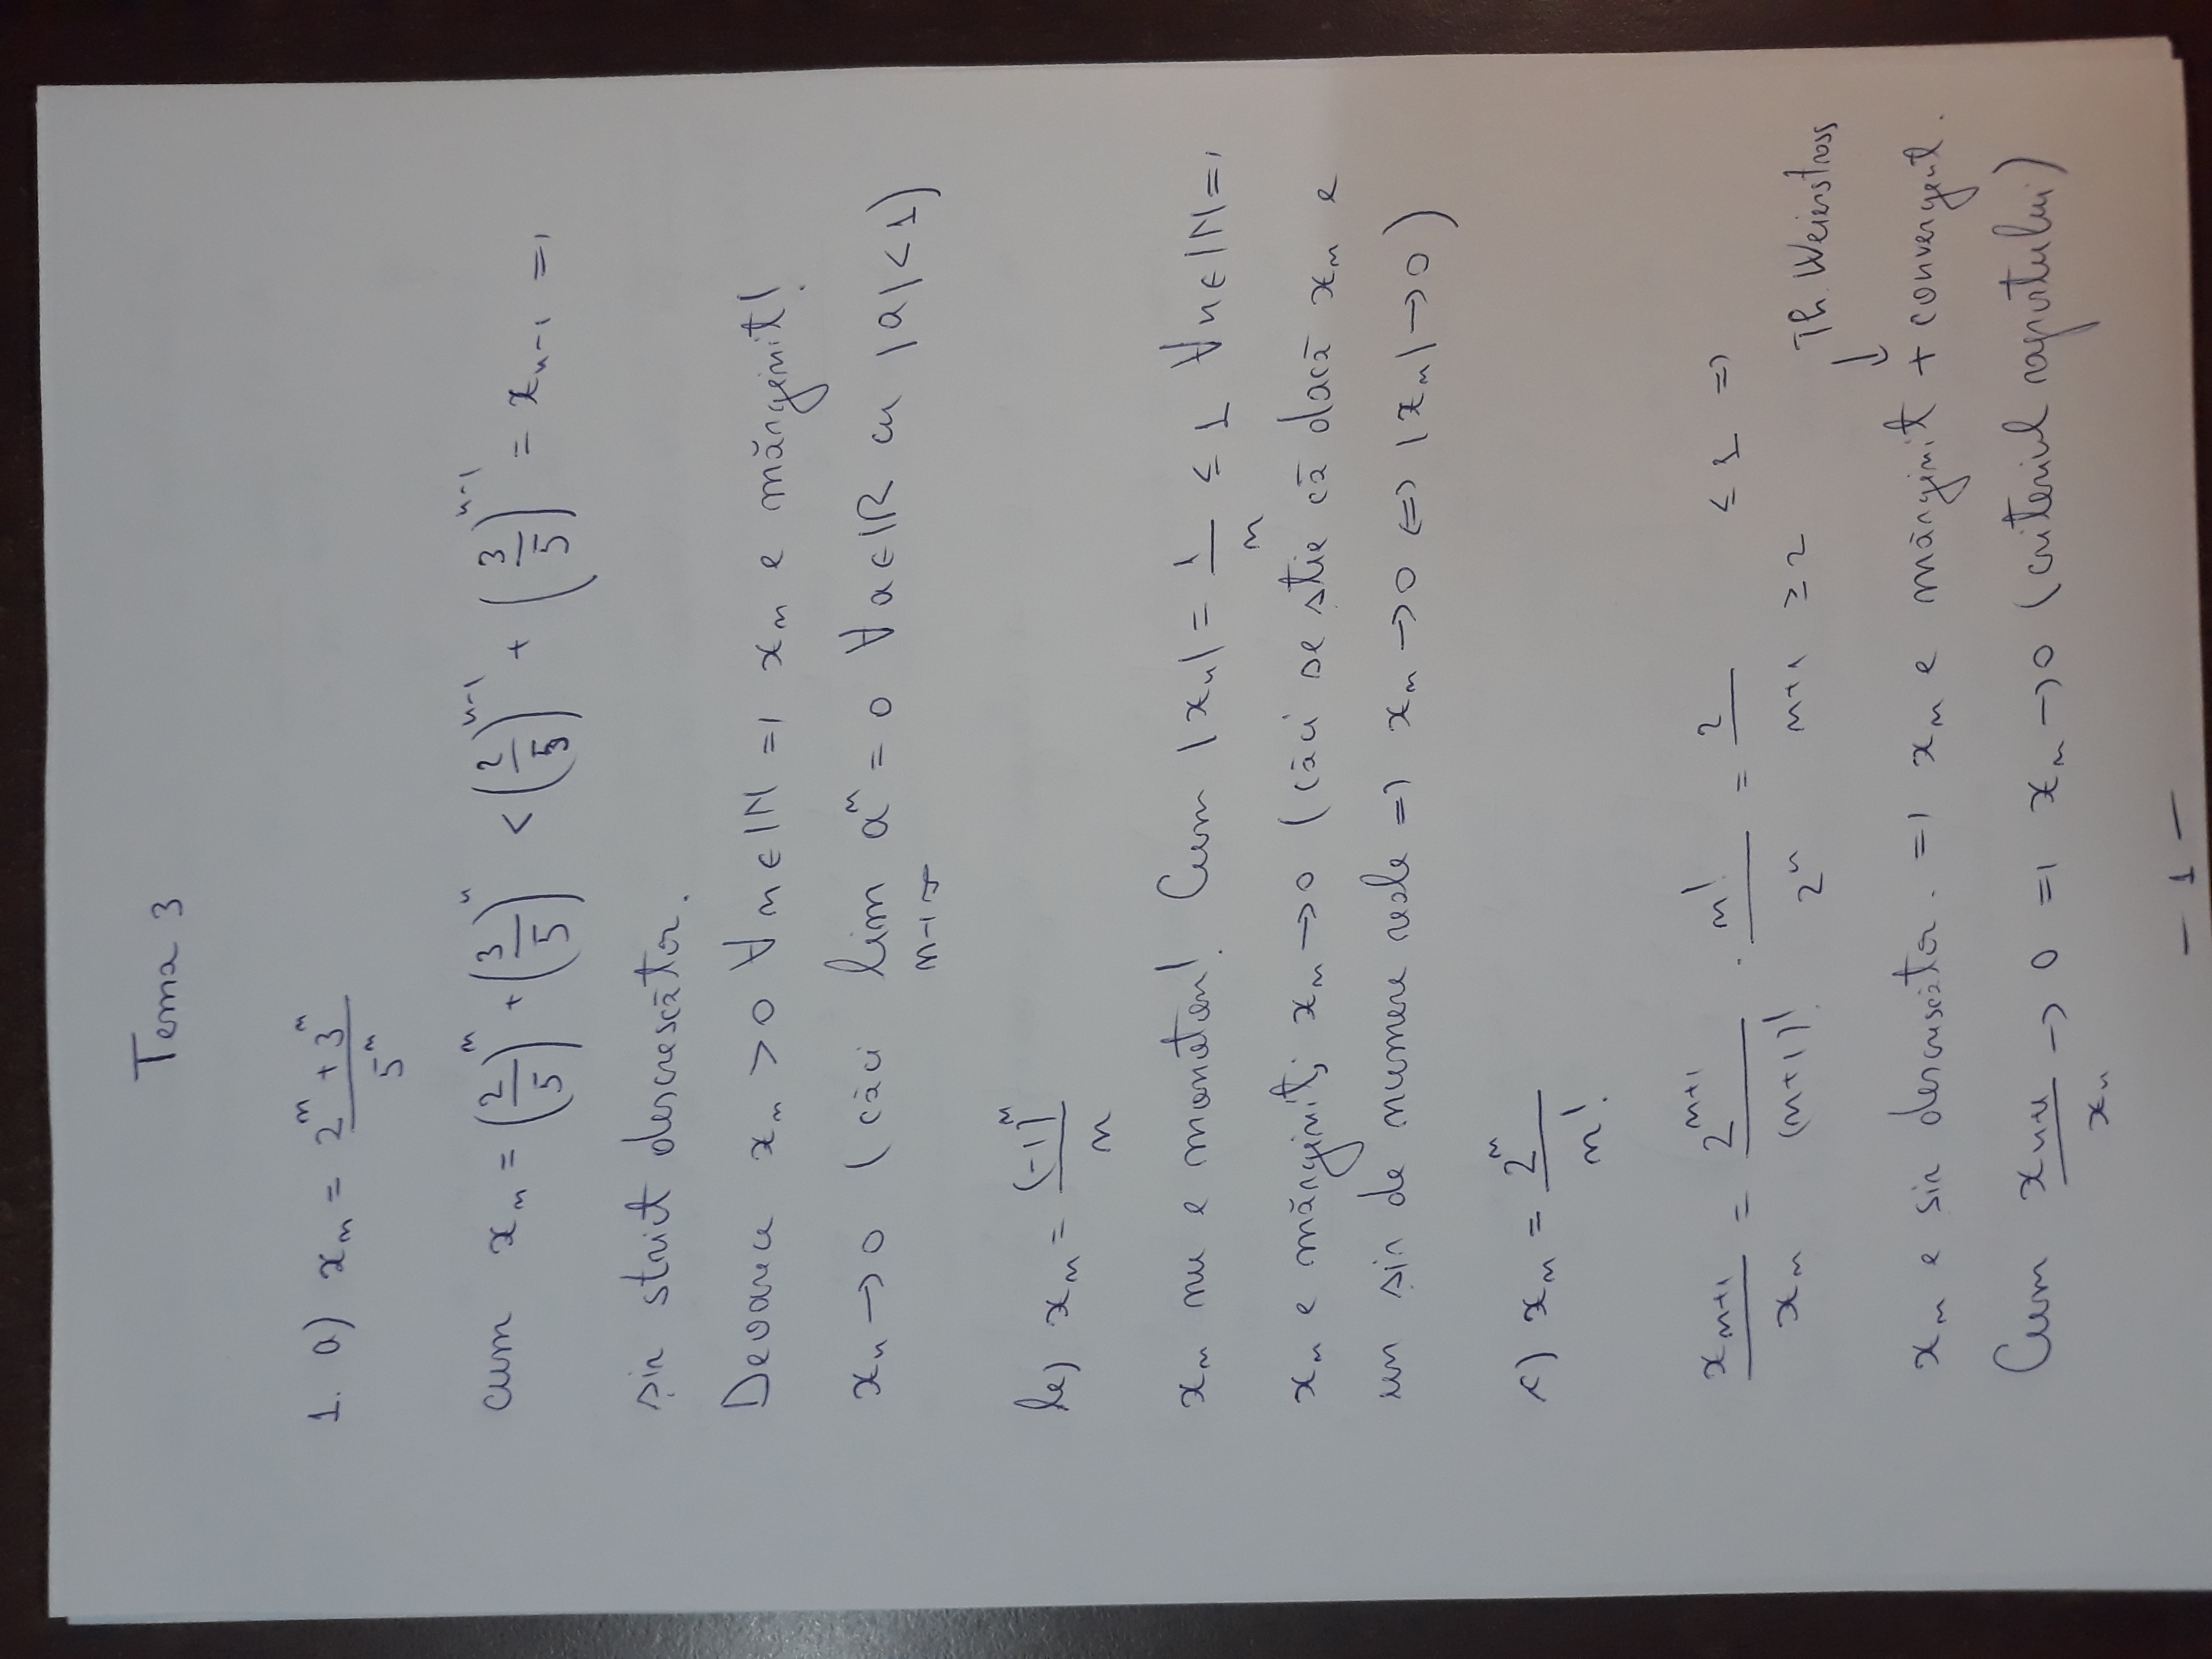 Tema 3
1. a) xₙ = (2ⁿ + 3ⁿ) / 5ⁿ
cum xₙ = (2/5)ⁿ + (3/5)ⁿ < (2/5)ⁿ⁻¹ + (3/5)ⁿ⁻¹ = xₙ₋₁ =>
șir strict descrescător.
Deoarece xₙ > 0 ∀ n ∈ ℕ => xₙ e mărginit!
xₙ → 0 (căci lim_{n→∞} aⁿ = 0 ∀ a ∈ ℝ cu |a| < 1)
b) xₙ = (-1)ⁿ / n
xₙ nu e monoton! Cum |xₙ| = 1/n ≤ 1 ∀ n ∈ ℕ =>
xₙ e mărginit; xₙ → 0 (căci se știe că dacă xₙ e
un șir de numere reale => xₙ → 0 <=> |xₙ| → 0)
c) xₙ = 2ⁿ / n!
xₙ₊₁ / xₙ = 2ⁿ⁺¹ / (n+1)! · n! / 2ⁿ = 2 / n+1 ≥ 2 ≤ 1 =>
Th. Weierstrass
↓
xₙ e sir descrescător. => xₙ e mărginit + convergent.
Cum xₙ₊₁ / xₙ → 0 => xₙ → 0 (criteriul raportului)
- 1 -